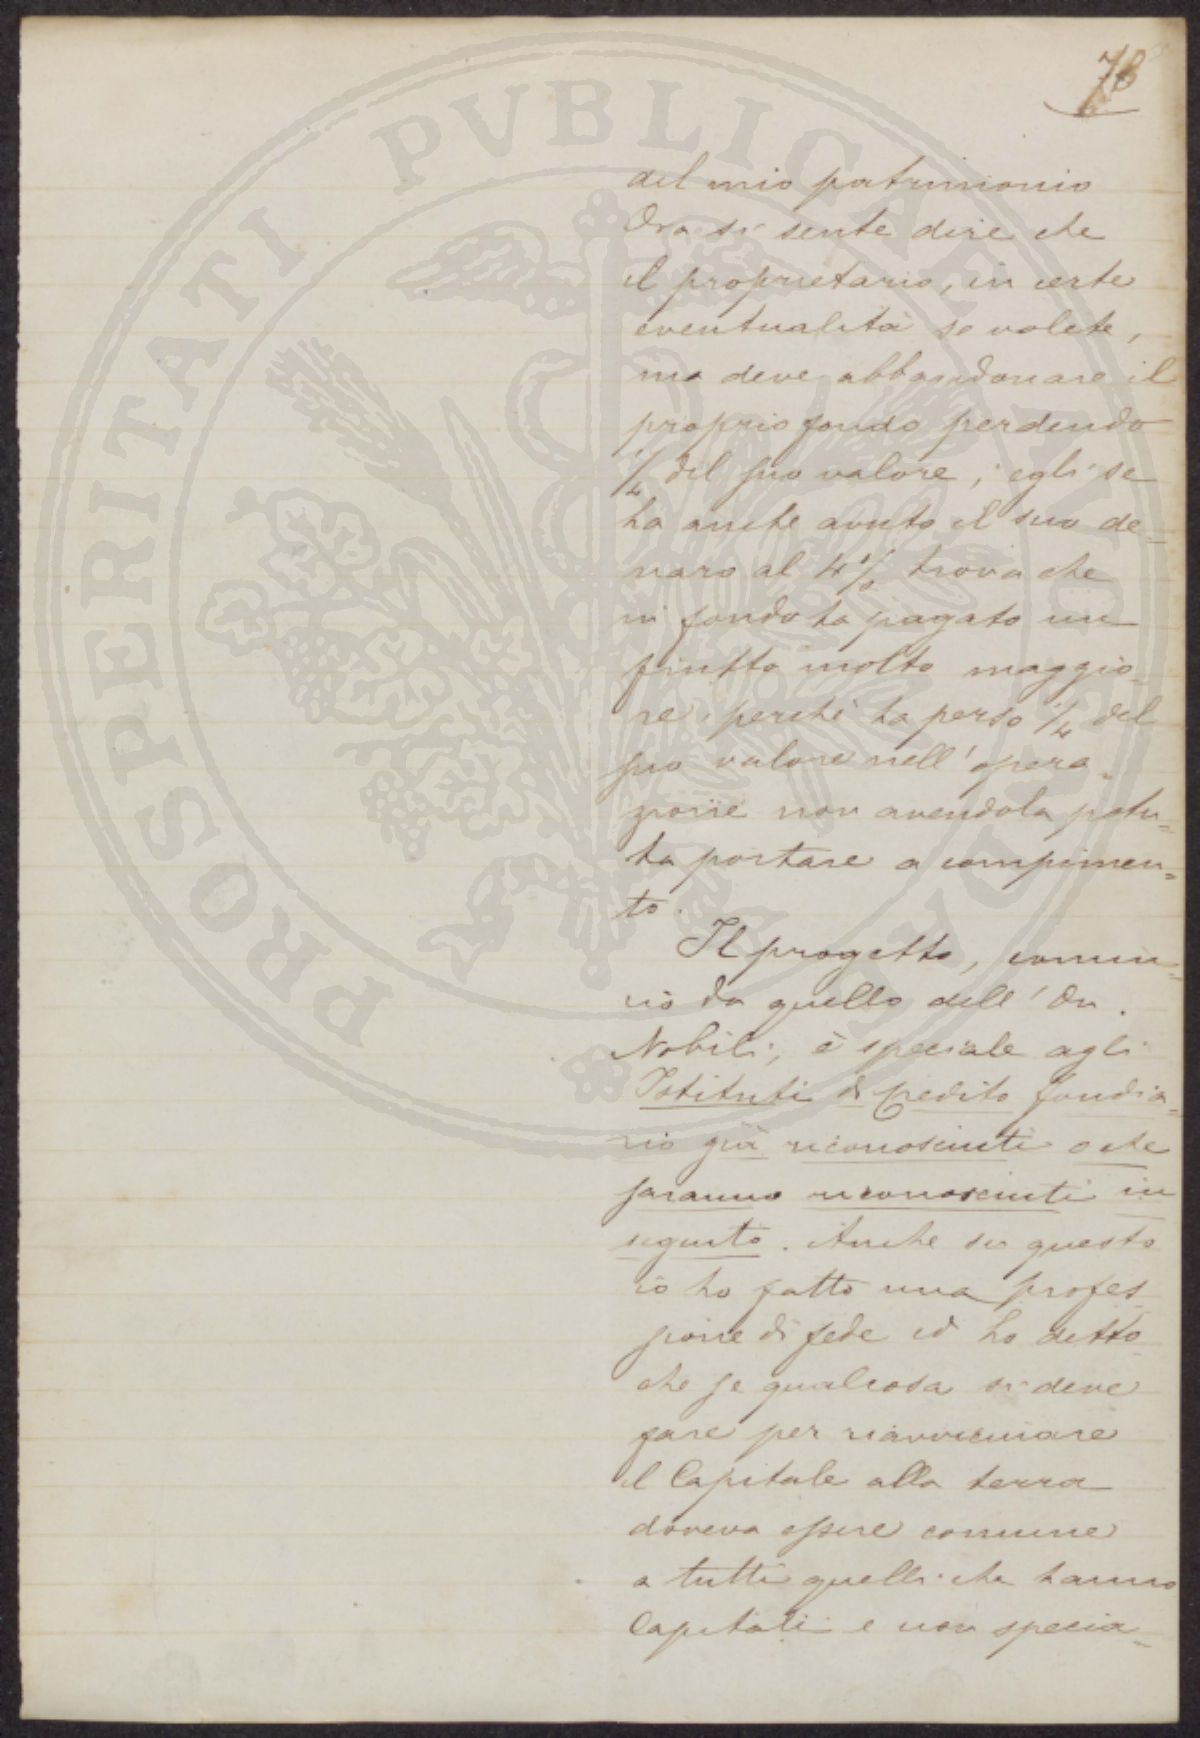 78
PROSPERITATI PVBLICAE AVGENDAE
del mio patrimonio
Ora si sente dire che
il proprietario, in certe
eventualità se volete,
ma deve abbandonare il
proprio fondo perdendo
1/4 del suo valore; egli se
ha anche avuto il suo de=
naro al 4% trova che
in fondo ha pagato un
frutto molto maggio=
re, perchè ha perso 1/4 del
suo valore nell'opera=
zione non avendola potu=
ta portare a compimen=
to.
Il progetto, comin=
ciò da quello dell'On.
Nobili, è speciale agli
Istituti di Credito fondia=
rio già riconosciuti o che
saranno riconosciuti in
seguito. Anche su questo
io ho fatto una profes=
sione di fede ed ho detto
che se qualcosa si deve
fare per riavvicinare
il Capitale alla terra
doveva essere comune
a tutti quelli che hanno
Capitali e non specia=